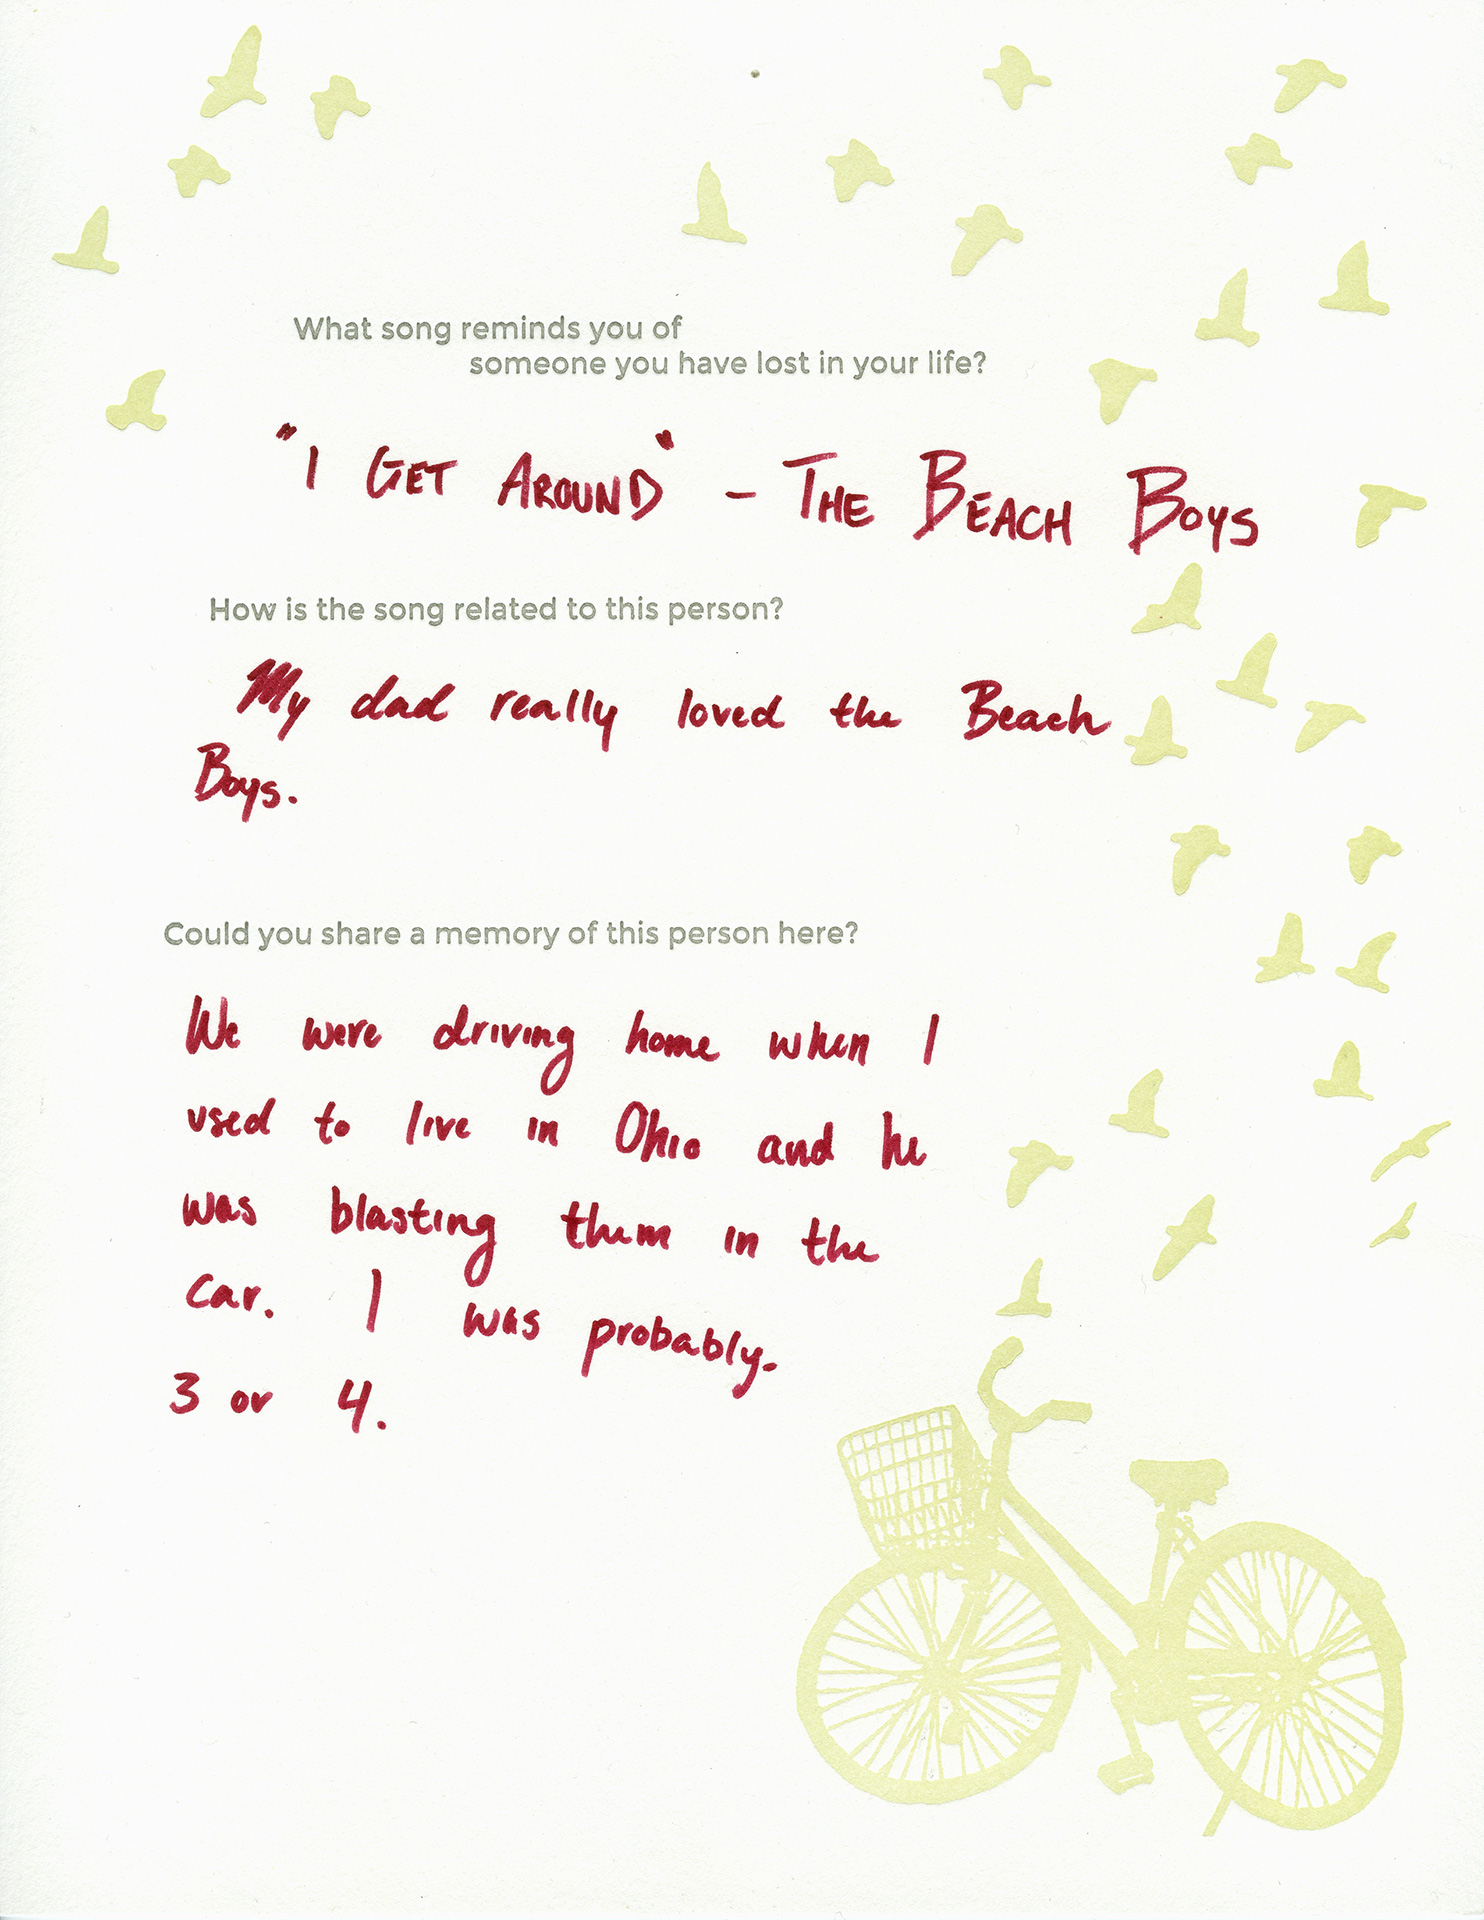 What song reminds you of
someone you have lost in your life?
"I GET AROUND" - THE BEACH BOYS
How is the song related to this person?
My dad really loved the Beach
Boys.
Could you share a memory of this person here?
We were driving home when I
used to live in Ohio and he
was blasting them in the
car. I was probably.
3 or 4.